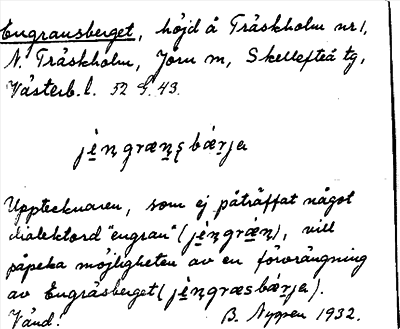 Engransberget, höjd å Träskholm nr 1,
N. Träskholm, Jörn sn, Skellefteå tg,
Västerb. l. 52 G. 43.
jèn̥græn̥s̨bær̥ja
Upptecknaren, som ej påträffat något
dialektord "engran" (jèn̥græ̀n̥), vill
påpeka möjligheten av en förvrängning
av Engräsberget (jèn̥græsbær̥ja).
Vänd. B. Nyman 1932.